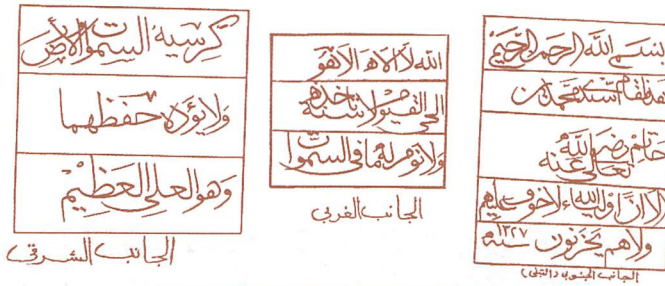 بسم الله الرحمن الرحيم
هذا مقام السيد محمد بن
حاتم رضي الله
تعالى عنه
الا ان اولياء الله لا خوف عليهم
ولا هم يحزنون سنة ١٣٢٧
الجانب الجنوبي (القبلي)
الله لا اله الا هو
الحي القيوم لا تاخذه سنة
ولا نوم له ما في السموا
ت
الجانب الغربي
كرسيه السموت والارض
ولا يؤده حفظهما
وهو العلي العظيم
الجانب الشرقي